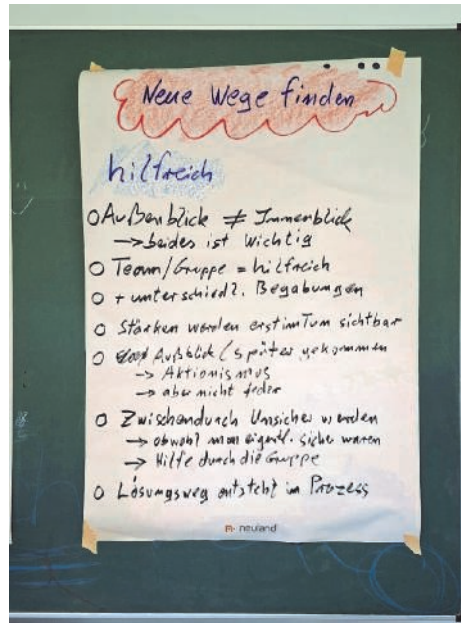 Neue Wege finden
hilfreich
O Außenblick ≠ Innenblick
→ beides ist wichtig
O Team/Gruppe = hilfreich
O + unterschiedl. Begabungen
O Stärken werden erst im Tun sichtbar
O später gekommen
→ Aktionismus
→ aber nicht jeder
O Zwischendurch Unsicher werden
→ obwohl man eigentl. sicher waren
→ Hilfe durch die Gruppe
O Lösungsweg entsteht im Prozess
neuland